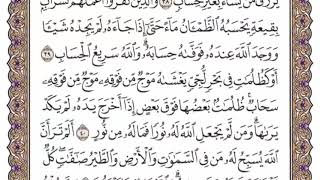 يَرْزُقُ مَن يَشَآءُ بِغَيْرِ حِسَابٍ ٣٨ وَٱلَّذِينَ كَفَرُوٓا۟ أَعْمَٰلُهُمْ كَسَرَابٍۭ
بِقِيعَةٍ يَحْسَبُهُ ٱلظَّمْـَٔانُ مَآءً حَتَّىٰٓ إِذَا جَآءَهُۥ لَمْ يَجِدْهُ شَيْـًٔا
وَوَجَدَ ٱللَّهَ عِندَهُۥ فَوَفَّىٰهُ حِسَابَهُۥ وَٱللَّهُ سَرِيعُ ٱلْحِسَابِ ٣٩
أَوْ كَظُلُمَٰتٍ فِى بَحْرٍ لُّجِّىٍّ يَغْشَىٰهُ مَوْجٌ مِّن فَوْقِهِۦ مَوْجٌ مِّن فَوْقِهِۦ
سَحَابٌ ظُلُمَٰتٌۢ بَعْضُهَا فَوْقَ بَعْضٍ إِذَآ أَخْرَجَ يَدَهُۥ لَمْ يَكَدْ
يَرَىٰهَا وَمَن لَّمْ يَجْعَلِ ٱللَّهُ لَهُۥ نُورًا فَمَا لَهُۥ مِن نُّورٍ ٤٠ أَلَمْ تَرَ أَنَّ
ٱللَّهَ يُسَبِّحُ لَهُۥ مَن فِى ٱلسَّمَٰوَٰتِ وَٱلْأَرْضِ وَٱلطَّيْرُ صَٰٓفَّٰتٍ كُلٌّ